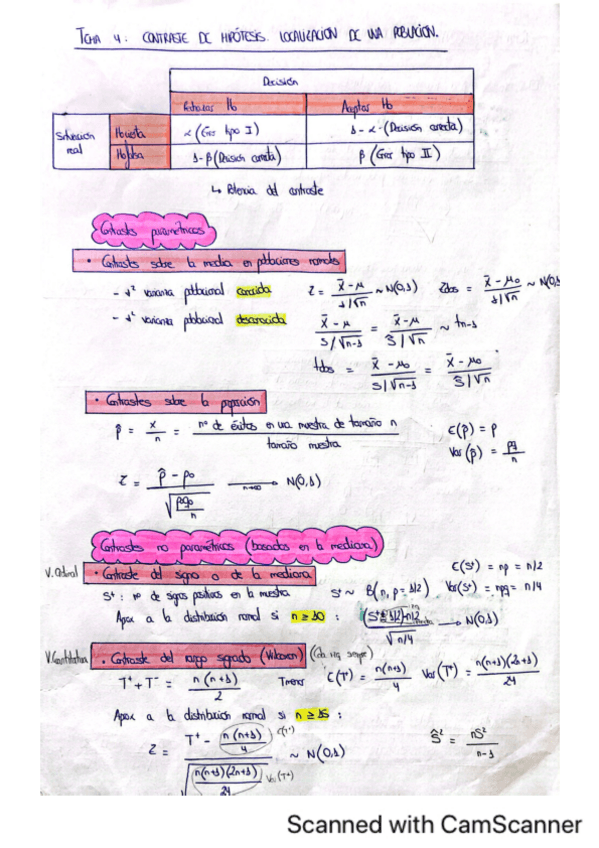 TEMA 4: CONTRASTE DE HIPÓTESIS. LOCALIZACIÓN DE UNA POBLACIÓN.
Decisión
Rechazas Ho Aceptas Ho
Situación real Ho cierta α (Error tipo I) 1 - α (Decisión correcta)
Ho falsa 1 - β (Decisión correcta) β (Error tipo II)
↳ Potencia del contraste
Contrastes paramétricos
• Contrastes sobre la media en poblaciones normales
- σ² varianza poblacional conocida Z = (x̄ - μ) / (σ/√n) ~ N(0,1) Zobs = (x̄ - μ0) / (σ/√n) ~ N(0,1
- σ² varianza poblacional desconocida (x̄ - μ) / (S/√n-1) = (x̄ - μ) / (Ŝ/√n) ~ tn-1
tobs = (x̄ - μ0) / (S/√n-1) = (x̄ - μ0) / (Ŝ/√n)
• Contrastes sobre la proporción
p̂ = x/n = nº de éxitos en una muestra de tamaño n / tamaño muestra E(p̂) = p
Var(p̂) = pq/n
Z = (p̂ - p0) / √(p0q0/n) → n→∞ N(0,1)
Contrastes no paramétricos (basados en la mediana)
V. Ordinal • Contraste del signo o de la mediana E(S⁺) = np = n/2
S⁺: nº de signos positivos en la muestra S⁺ ~ B(n, p = 1/2) Var(S⁺) = npq = n/4
Aprox a la distribución normal si n ≥ 30 : (S⁺ ± 1/2) - n/2 / √n/4 → N(0,1)
V. Cuantitativa • Contraste del rango signado (Wilcoxon)
T⁺ + T⁻ = n(n+1)/2 Tmenor E(T⁺) = n(n+1)/4 Var(T⁺) = n(n+1)(2n+1)/24
Aprox a la distribución normal si n ≥ 15 :
Z = (T⁺ - n(n+1)/4) / √(n(n+1)(2n+1)/24) ~ N(0,1) E(T⁺) Var(T⁺) Ŝ² = nS²/n-1
Scanned with CamScanner